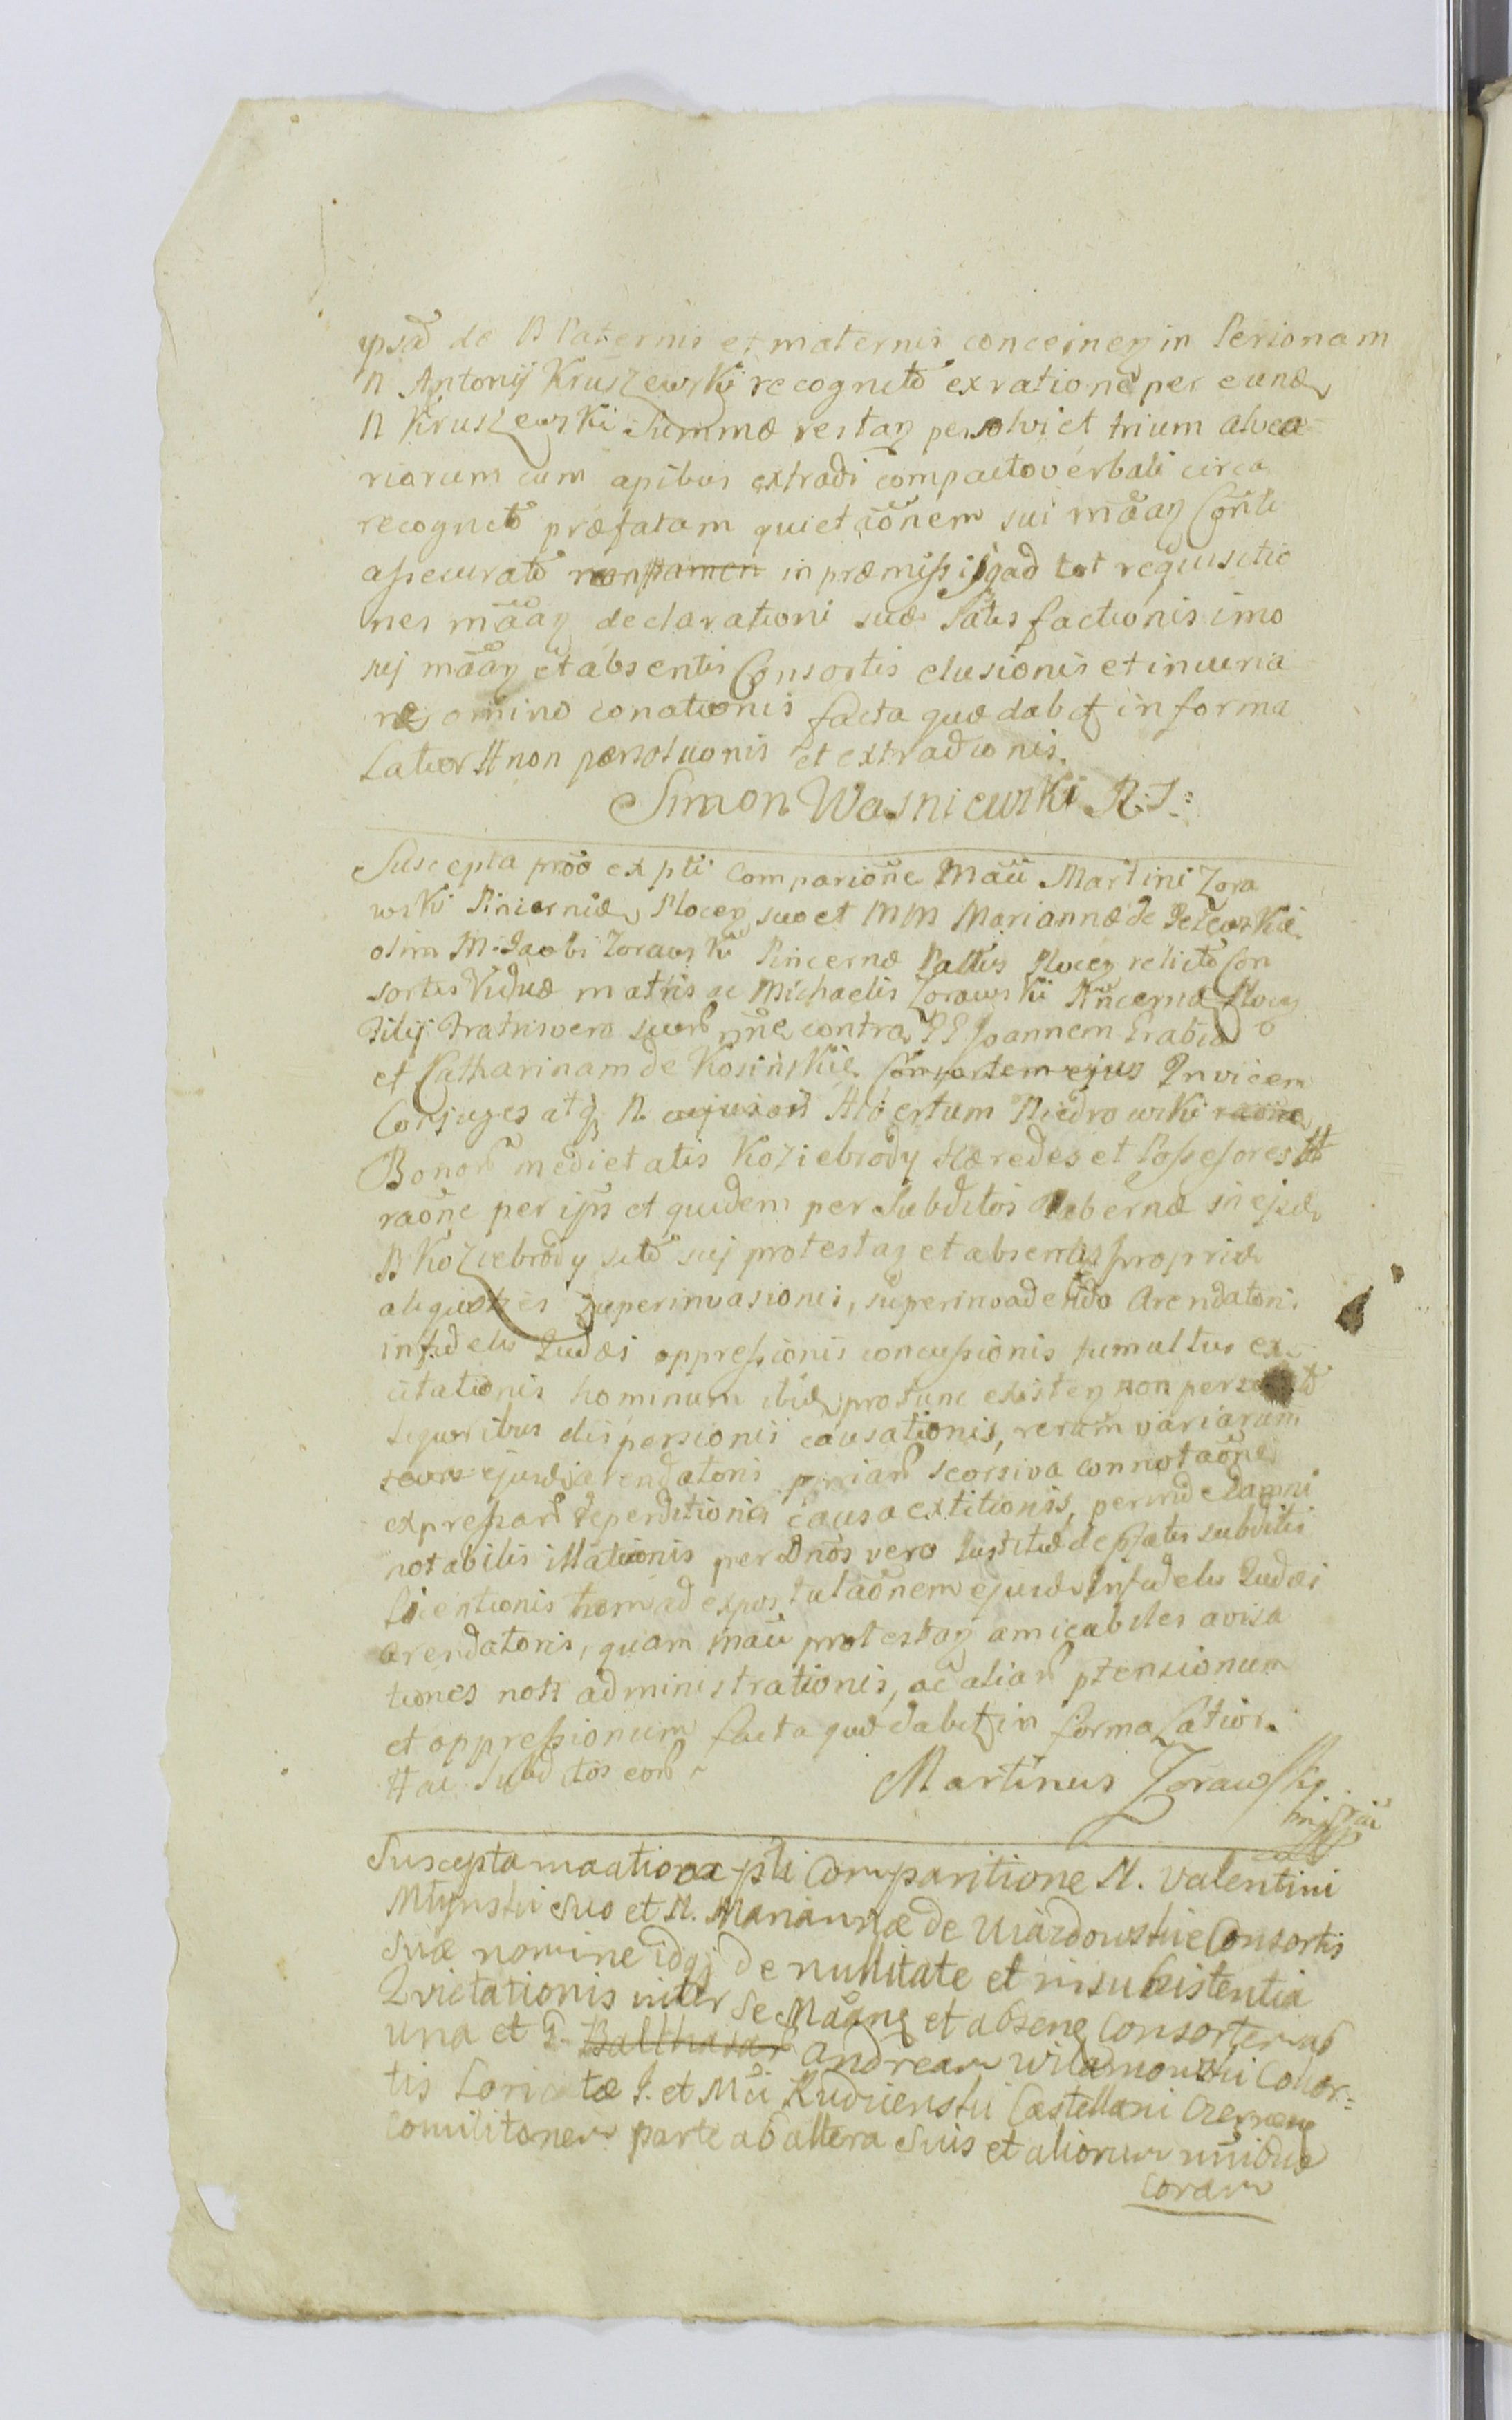 ypsã de B Paternis et maternis concernen in Personam
N Antonij Kruszewski recognitõ ex ratione per eund
N Kruszewski Summæ restan persolvi et trium alvea
riorum cum apibus extradi compacto verbali circa
recognitõ præfatam quietaõnem sui mãan Consti
assecuratõ non tamen in præmissis ad tot requisitio
nes mãan declarationi suæ Satisfactionis imo
sui mãan et absentis Consortis elusionis et iniuria
ræ omino conationis facta quæ dabit in forma
Latior # non persolutionis et extradionis.
Simon Wasniewski R:S:
Suscepta prõo ex pti Comparione Mãci Martini Zora
wski Pincernæ Plocen suo et MM Mariannæ de
olim M. Jacobi Zorawski Pincernæ Plocen relictõ Con
sortis Viduæ matris ac Michaelis Zorawski Pincernæ Plocen
filij fratris vero suorũ nñe contra GG Joannem Grabia
et Catharinam de Kosińskie Consortem ejus Invicem
Conjuges atq N Albertum Niedrowski raõne
Bonorũ medietatis Koziebrody Hæredes et Possessores #
raõne per ijs et quidem per Subditos Tabernæ in ejusd
B Koziebrody sitõ sui protestan et absentis propriæ
superinvasionis, superinvadendo Arendatoris
infidelis Judæi oppressionis concussionis tumultus ex
citationis hominum ibid protunc existen non
liquoribus dispersionis causationis, rerum variarum
ejusd arendatoris seorsiva connotaõne
expressarũ deperditionis causa extitionis, perinde damni
notabilis illationis per Dnos vero Justitiæ de subditis
tam ad expostulaõnem ejusd Infidelis Judæi
arendatoris, quam Mãci protestan amicabiles avisa
tiones non administrationis, ac aliarũ ptensionum
et oppressionum facta quæ dabit in forma Latior.
# ac Subditos eorũ
Martinus Zorawski
mp
Suscepta ex pti Comparitione N. Valentini
Młynski suo et N. Mariannæ de Uiazdowskie Consortis
suæ nomine idq de nullitate et insubsistentia
Quietationis inter se Mãane et absene Consortem ab
una et G. Balthasar Andream Wilamowski Cohor=
tis Loricatæ J. et Mci Kudzienski Castellani
Comilitonem parte ab altera suis et aliorum nñibus
coram